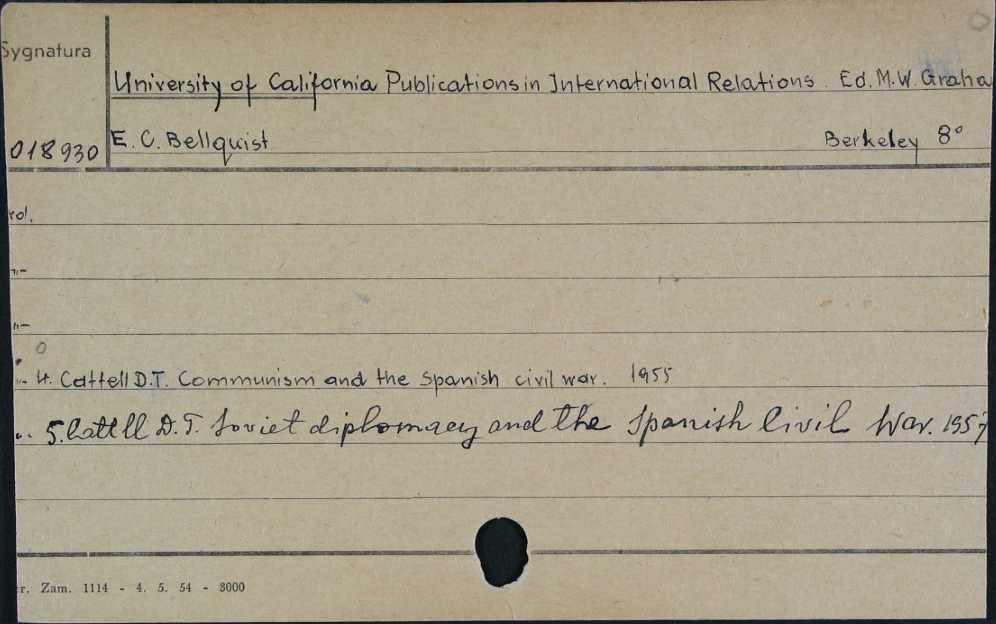 Sygnatura
University of California Publications in International Relations. Ed. M. W. Graha
018930 E. C. Bellquist Berkeley 8°
vol.
"-
"-
"- 4. Cattell D.T. Communism and the Spanish civil war. 1955
5. Cattell D.T. Soviet diplomacy and the Spanish Civil War. 1957
r. Zam. 1114 - 4. 5. 54 - 8000